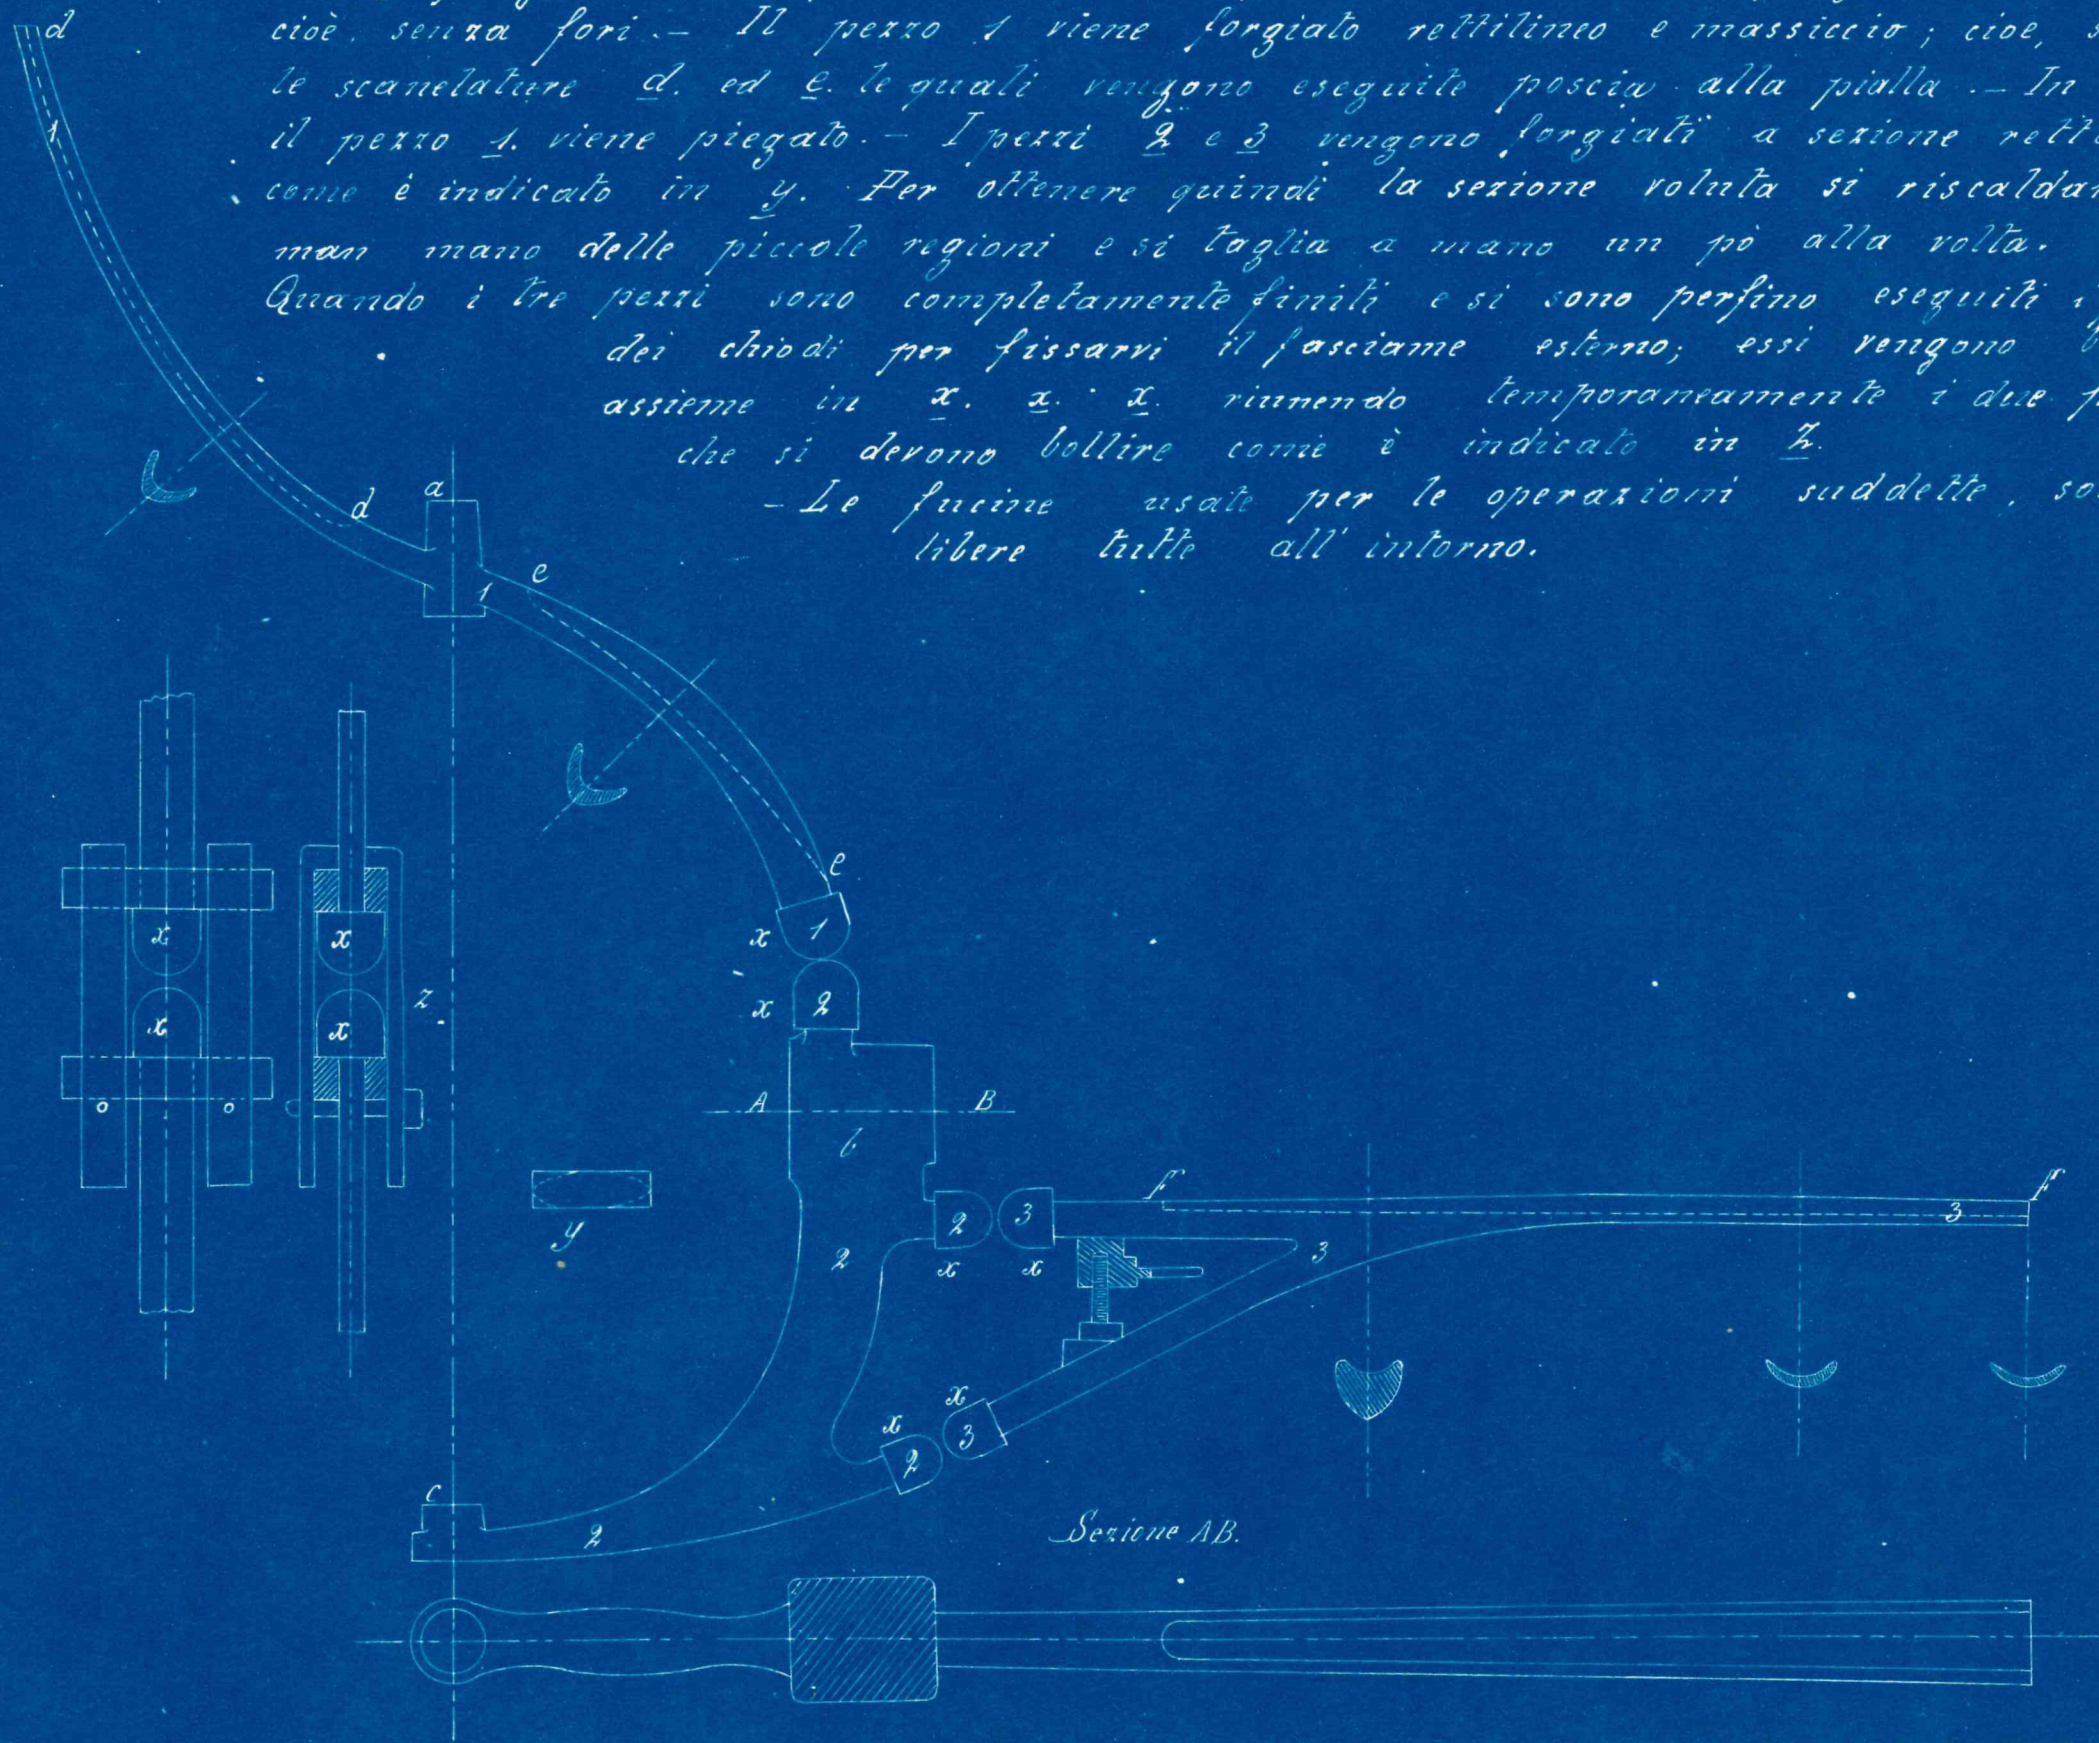 cioè, senza fori.- Il pezzo 1 viene forgiato rettilineo e massiccio; cioè,
le scanelature d. ed e. le quali vengono eseguite poscia alla pialla.- In
il pezzo 1. viene piegato.- I pezzi 2 e 3 vengono forgiati a sezione rett
come è indicato in y. Per ottenere quindi la sezione voluta si riscaldan
man mano delle piccole regioni e si taglia a mano un pò alla volta.
Quando i tre pezzi sono completamente finiti e si sono perfino eseguiti i
dei chiodi per fissarvi il fasciame esterno; essi vengono
assieme in x. x. x. riunendo temporaneamente i due
che si devono bollire come è indicato in Z.
-Le fucine usate per le operazioni suddette, so
libere tutte all'intorno.
d
1
d
a
1
e
e
x 1
x 2
x x
x x
z
o o
A B
b
y
f f
2 3
3
2
x x
3
x
x
2 3
c
2
Sezione AB.